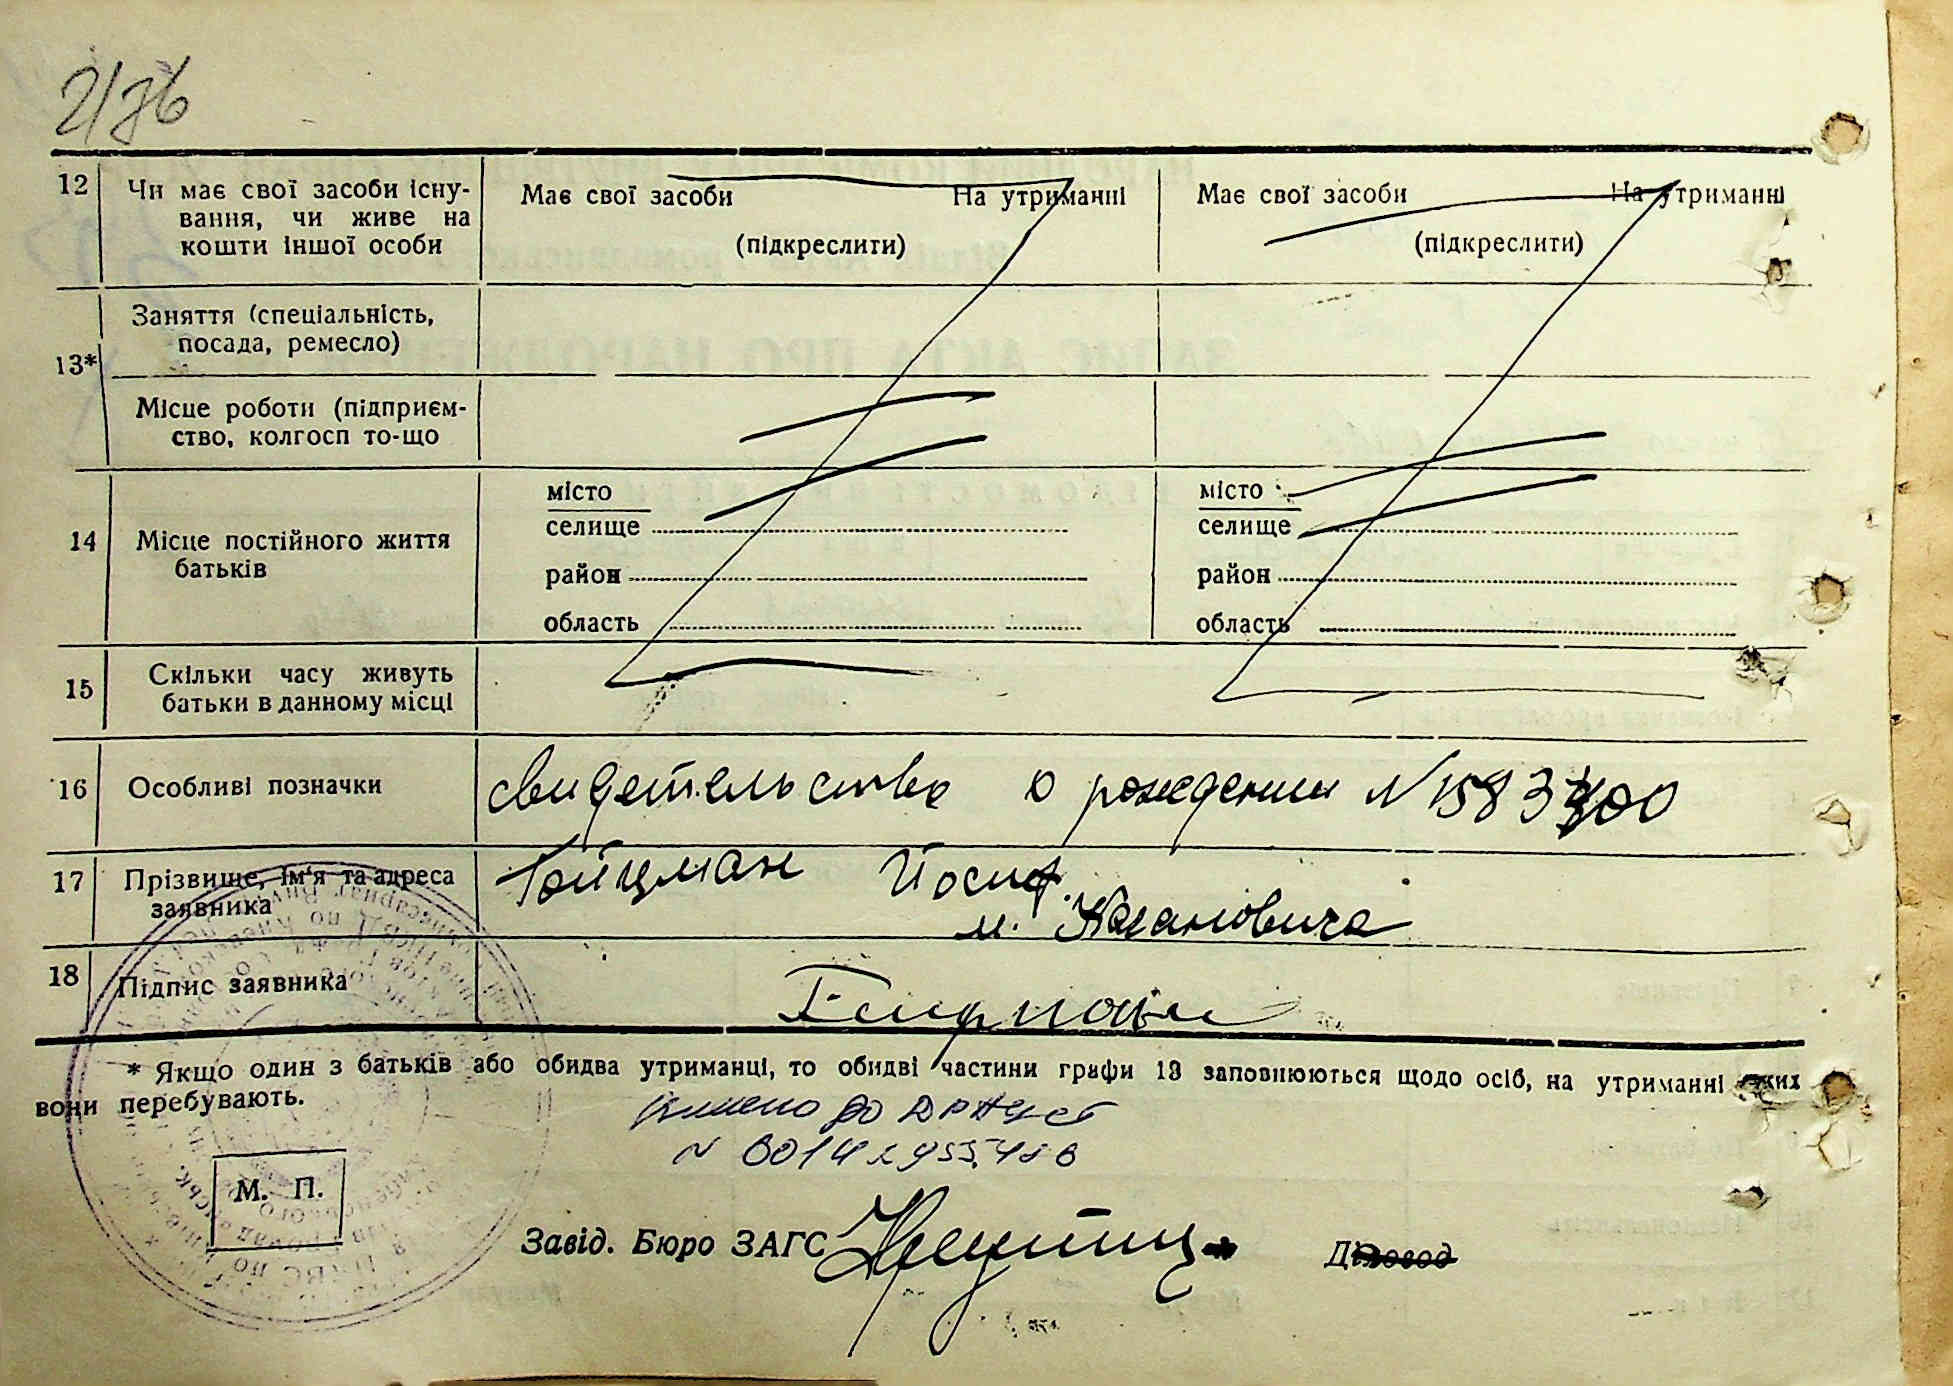 2/36
12 Чи має свої засоби існу-
вання, чи живе на
кошти іншої особи
Має свої засоби На утриманні
(підкреслити)
Має свої засоби На утриманні
(підкреслити)
13*
Заняття (спеціальність,
посада, ремесло)
Місце роботи (підприєм-
ство, колгосп то-що
14 Місце постійного життя
батьків
місто
селище
район
область
місто
селище
район
область
15 Скільки часу живуть
батьки в данному місці
16 Особливі позначки
свидетельство о рождении N
17 Прізвище, ім'я та адреса
заявника
Гойцман Йосиф
м. Кагановича
18 Підпис заявника
* Якщо один з батьків або обидва утриманці, то обидві частини графи 13 заповнюються щодо осіб, на утриманні яких
вони перебувають.
до ДРАЦС
N
М. П.
Завід. Бюро ЗАГС
Діловод